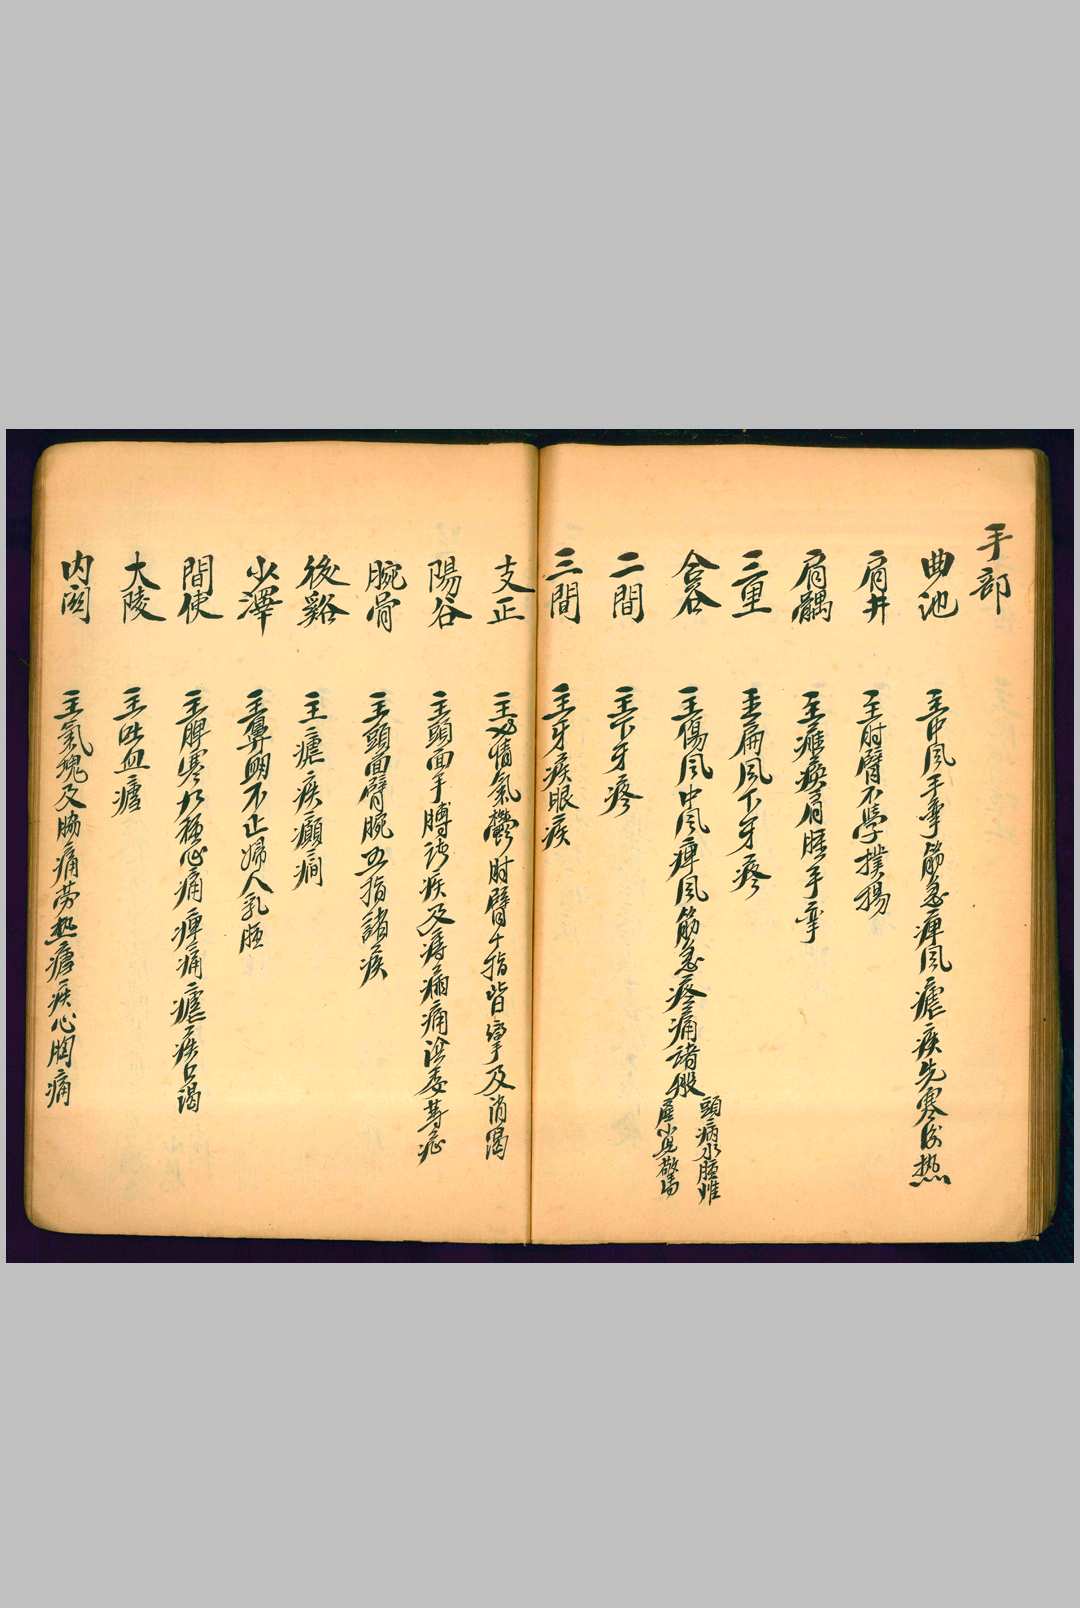 手部
曲池 主中風手孿筋急痺風瘧疾先寒後热
肩井 主肘臂不學撲揚
肩髃 主癱瘓肩腫手孿
三里 主扁風下牙疼
合谷 主傷風中風痺風筋急疼痛諸般 頭病水腫难
產小兒驚
二間 主下牙疼
三間 主牙疾眼疾
支正 主七情氣鬱肘臂十指皆孿及消渴
陽谷 主頭面手膊諸疾及痔痛
腕骨 主頭面臂腕五指諸疾
後谿 主瘧疾癲癇
少澤 主鼻衄不止婦人乳腫
間使 主脾寒九種心痛痺痛瘧疾口渴
大陵 主吐血瘧
内関 主氣塊及脇痛劳热瘧疾心胸痛